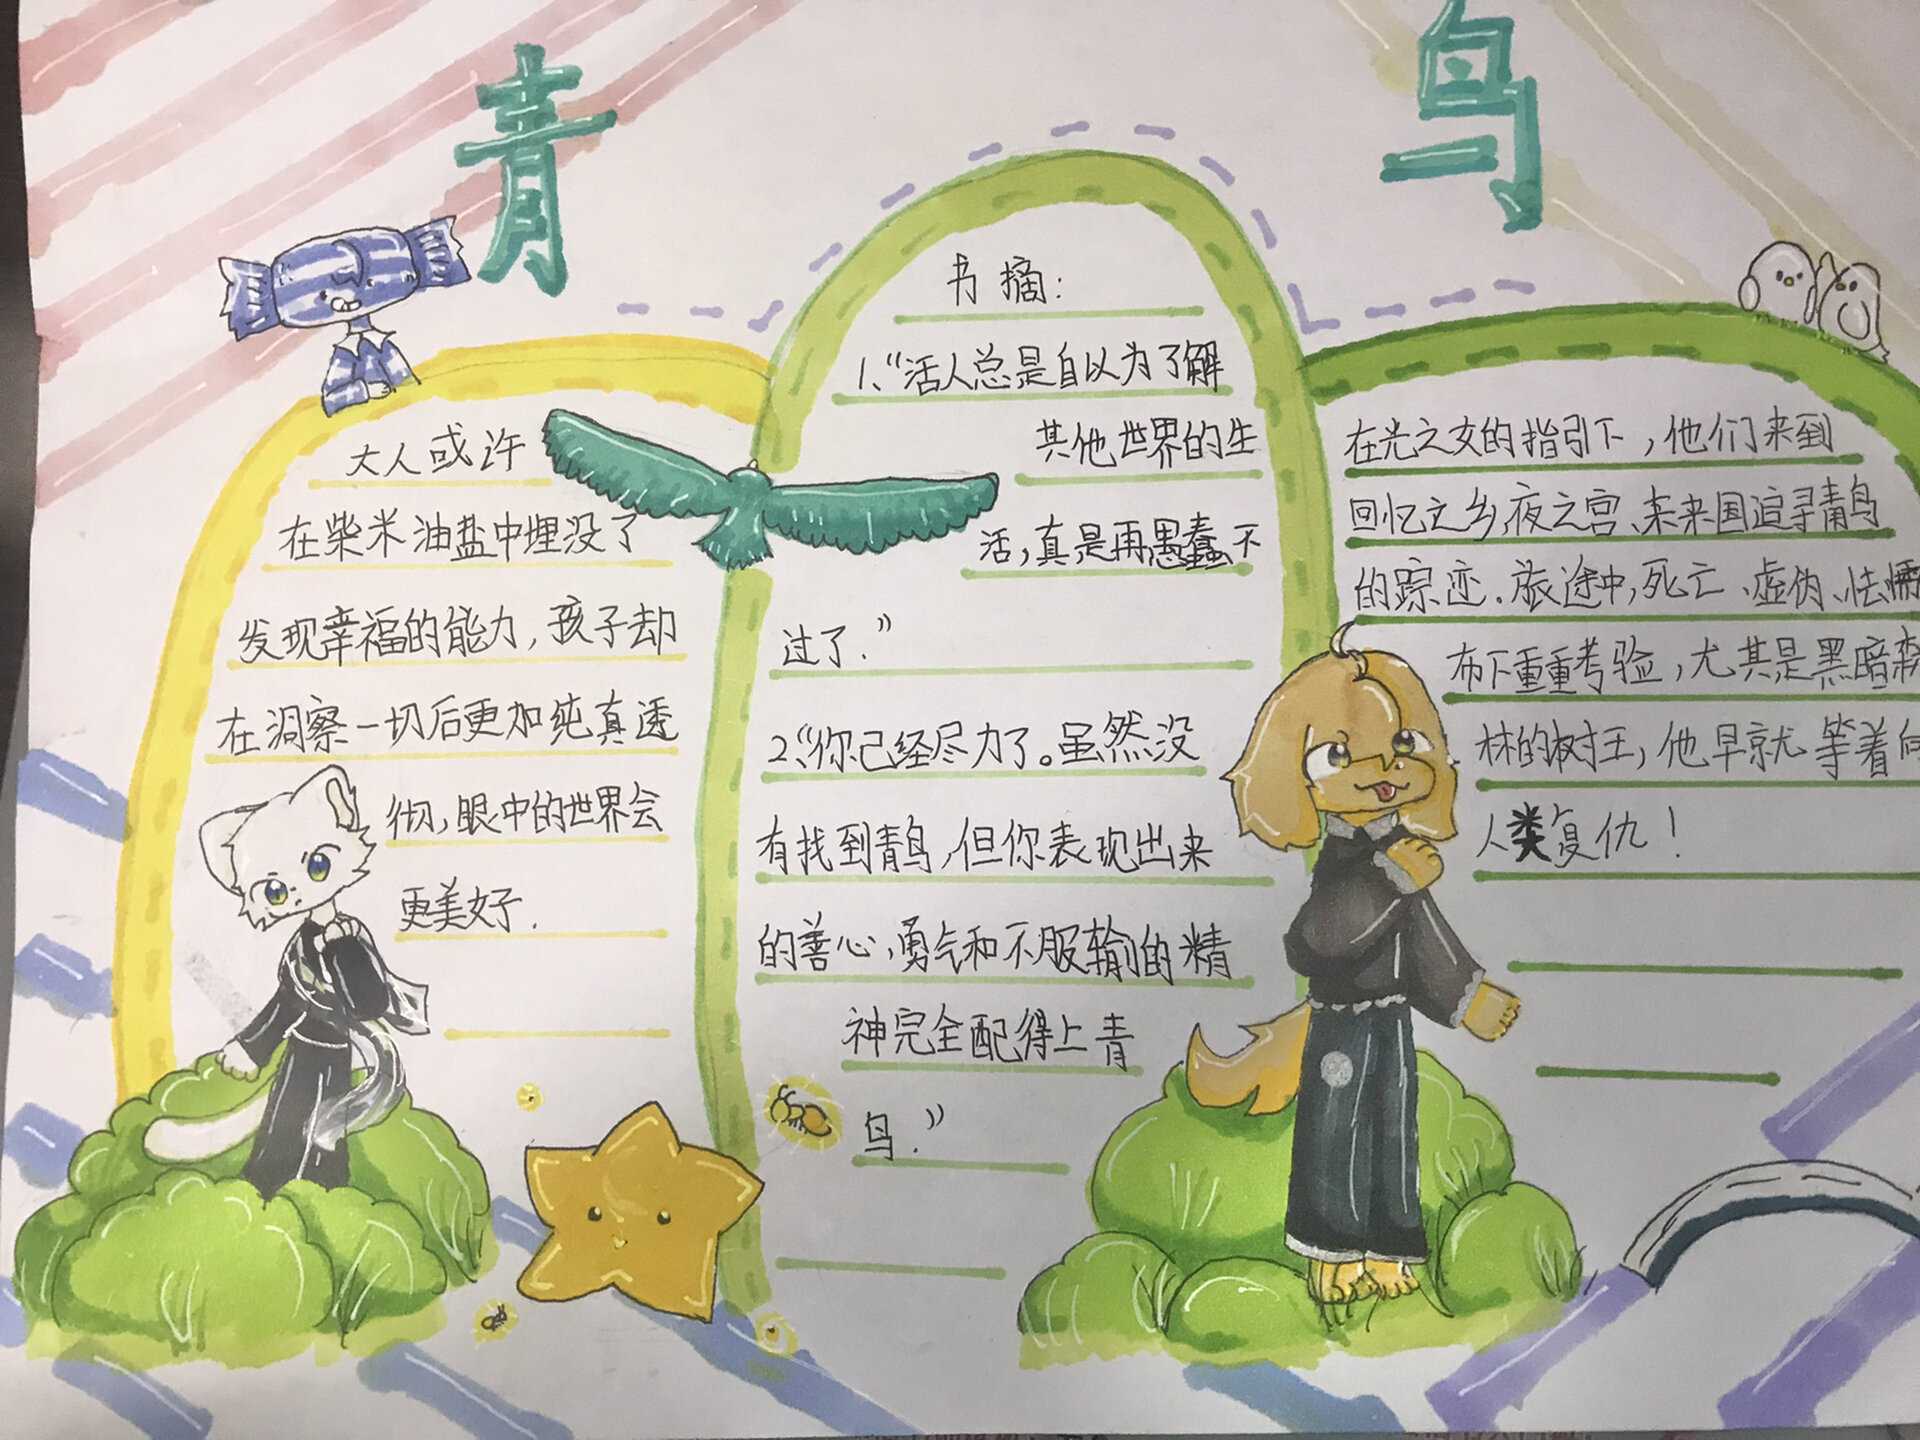 青鸟
大人或许
在柴米油盐中埋没了
发现幸福的能力，孩子却
在洞察一切后更加纯真透
彻，眼中的世界会
更美好.
书摘：
1、“活人总是自以为了解
其他世界的生
活，真是再愚蠢不
过了.”
2、“你已经尽力了。虽然没
有找到青鸟，但你表现出来
的善心，勇气和不服输的精
神完全配得上青
鸟.”
在光之女的指引下，他们来到
回忆之乡、夜之宫、未来国追寻青鸟
的踪迹.旅途中，死亡、虚伪、怯懦
布下重重考验，尤其是黑暗森
林的树王，他早就等着向
人类复仇！